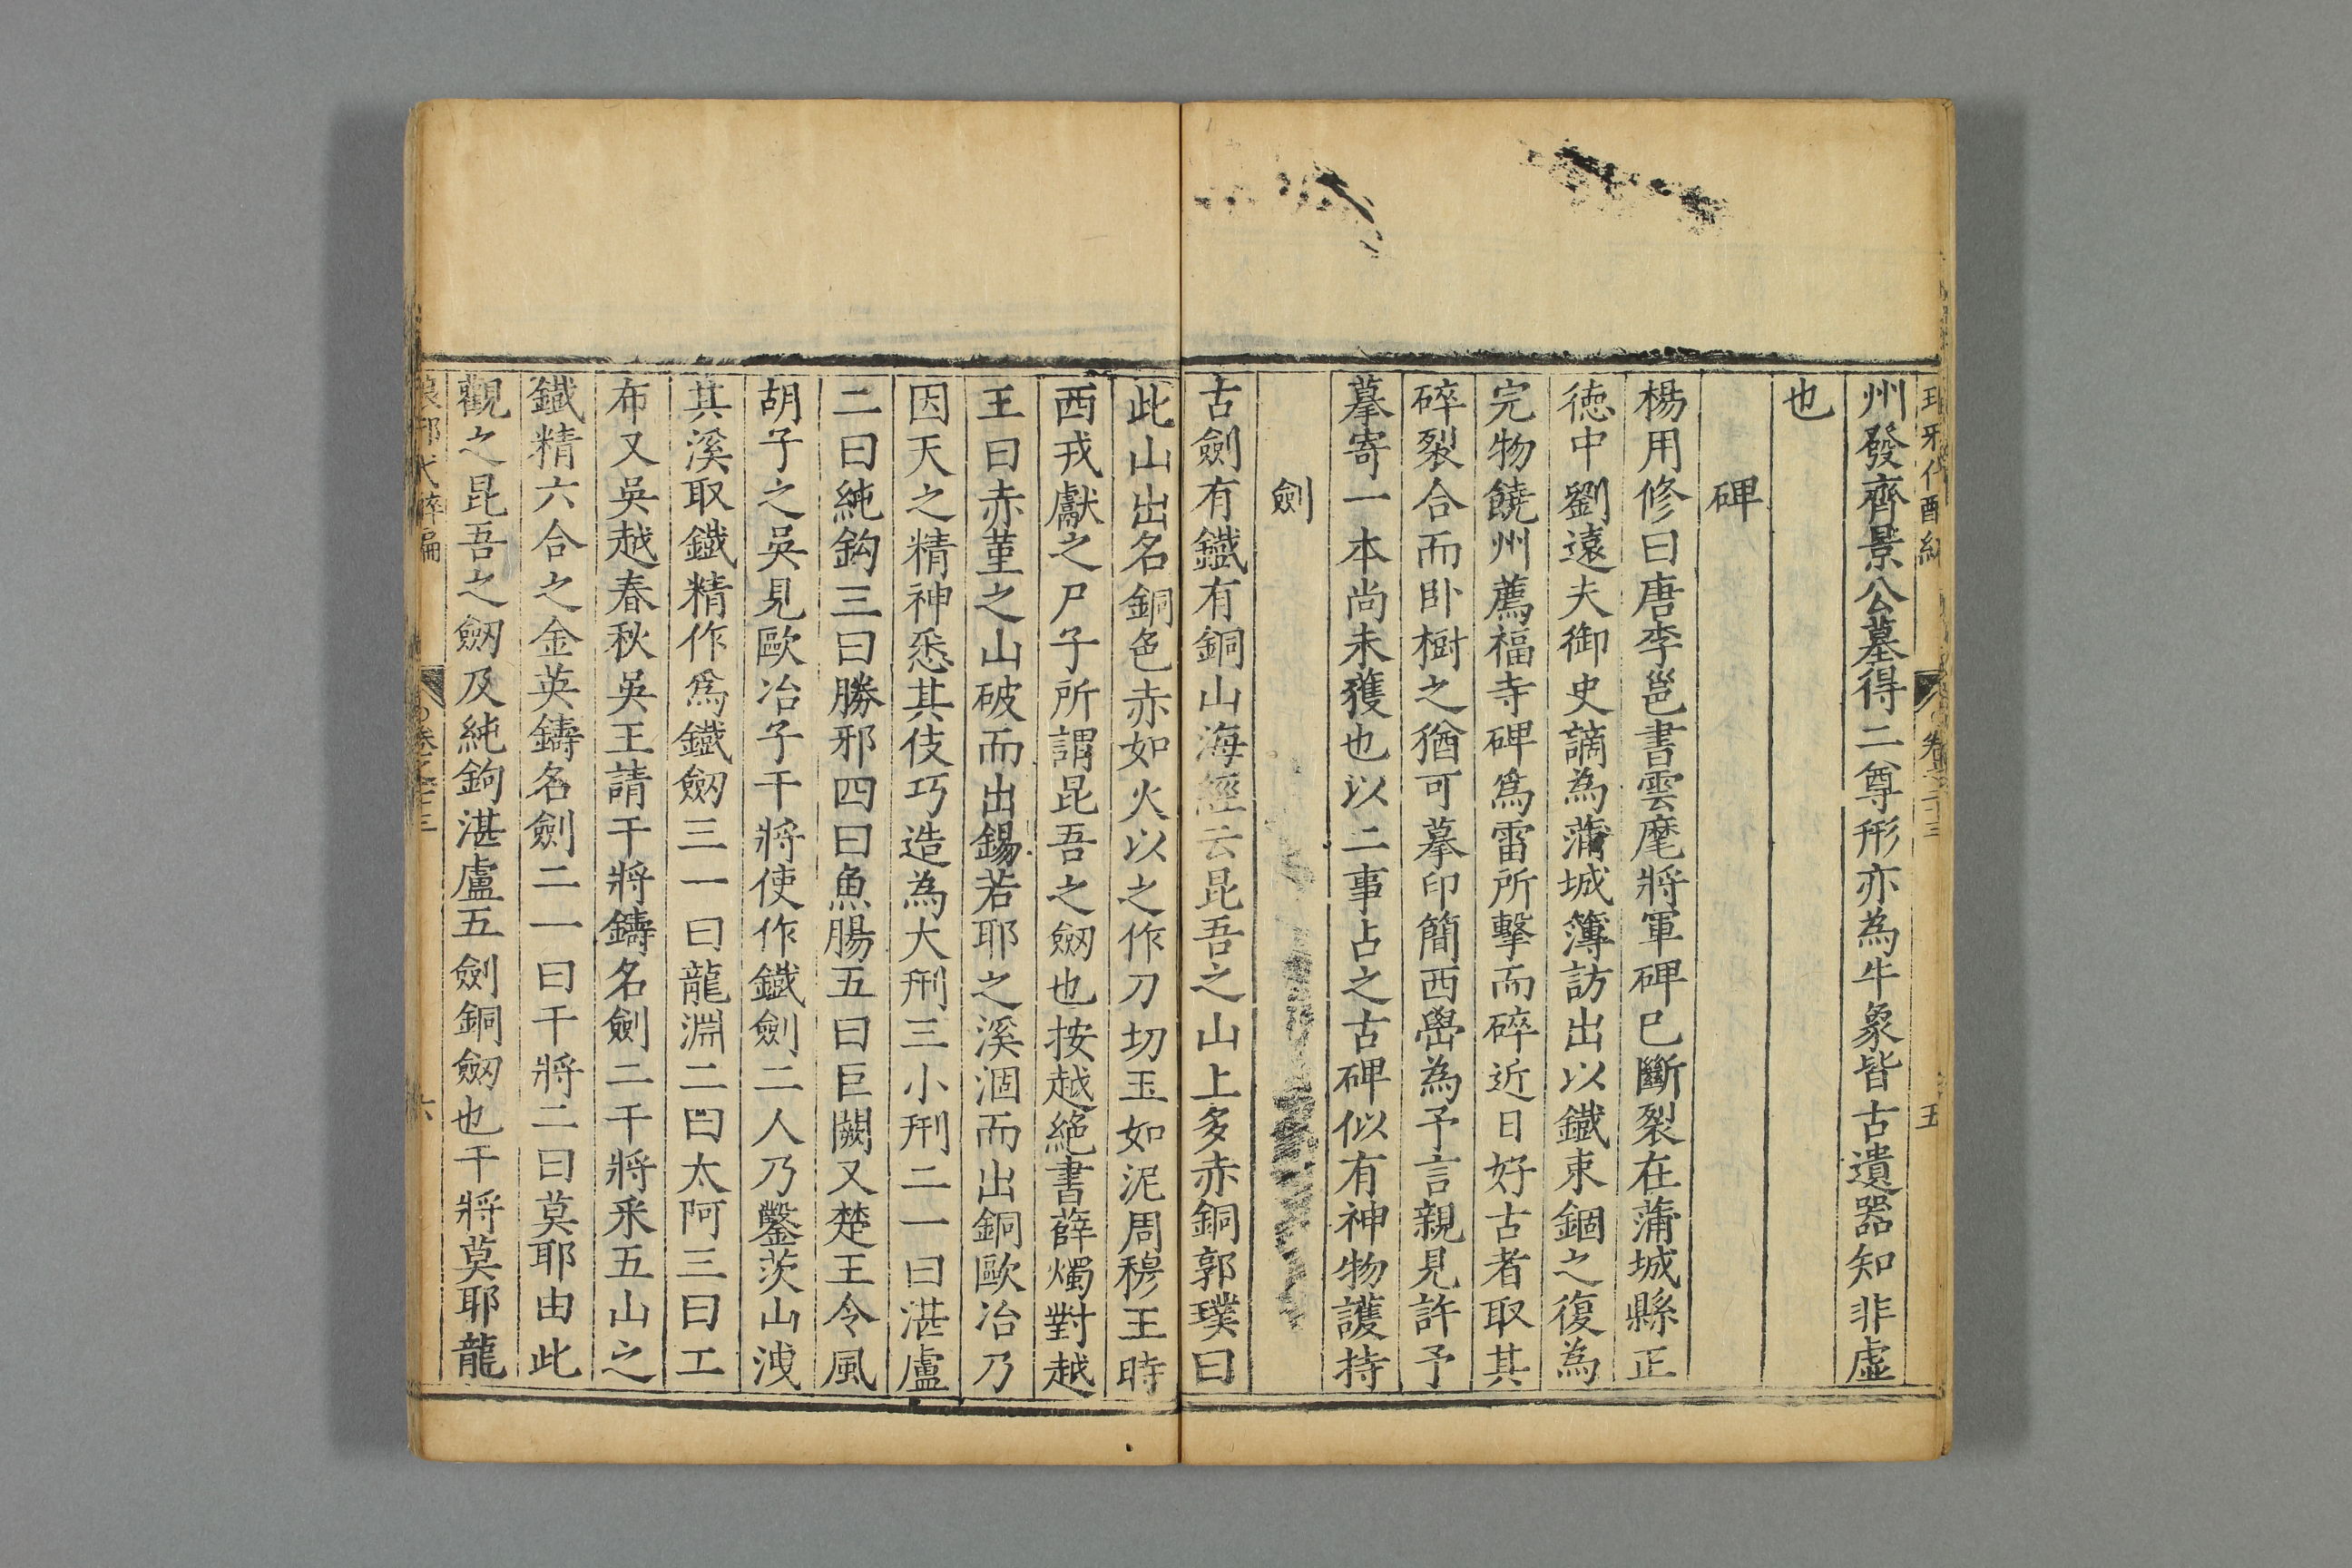 州發齊景公墓得二尊形亦為牛象皆古遺器知非虛
也
碑
楊用修曰唐李邕書雲麾將軍碑已斷裂在蒲城縣正
徳中劉遠夫御史謫為蒲城簿訪出以鐵束錮之復為
完物饒州薦福寺碑爲雷所擊而碎近日好古者取其
碎裂合而卧樹之猶可摹印簡西嶨為予言親見許予
摹寄一本尚未獲也以二事占之古碑似有神物護持
劍
古劍有鐵有銅山海經云昆吾之山上多赤銅郭璞曰
此山出名銅色赤如火以之作刀切玉如泥周穆王時
西戎獻之尸子所謂昆吾之劒也按越絕書薛燭對越
王曰赤菫之山破而出錫若耶之溪涸而出銅歐冶乃
因天之精神悉其伎巧造為大刑三小刑二一曰湛盧
二曰純鈎三曰勝邪四曰魚腸五曰巨闕又楚王令風
胡子之吳見歐冶子干將使作鐵劍二人乃鑿茨山洩
其溪取鐵精作爲鐵劒三一曰龍淵二曰太阿三曰工
布又吳越春秋吳王請干將鑄名劍二干將釆五山之
鐵精六合之金英鑄名劍二一曰干將二曰莫耶由此
觀之昆吾之劒及純鉤湛盧五劍銅劒也干將莫耶龍